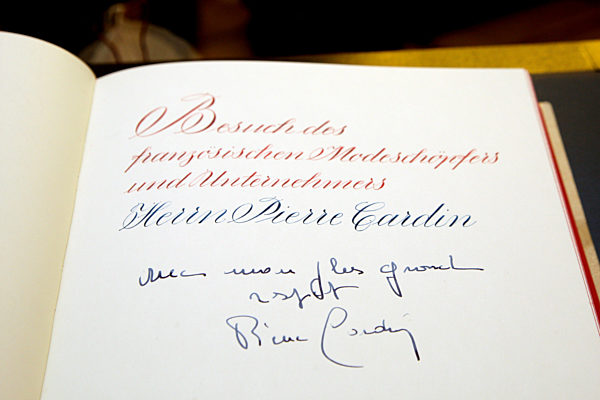 Besuch des
französischen Modeschöpfers
und Unternehmers
Herrn Pierre Cardin
avec mon plus grand
respect
Pierre Cardin